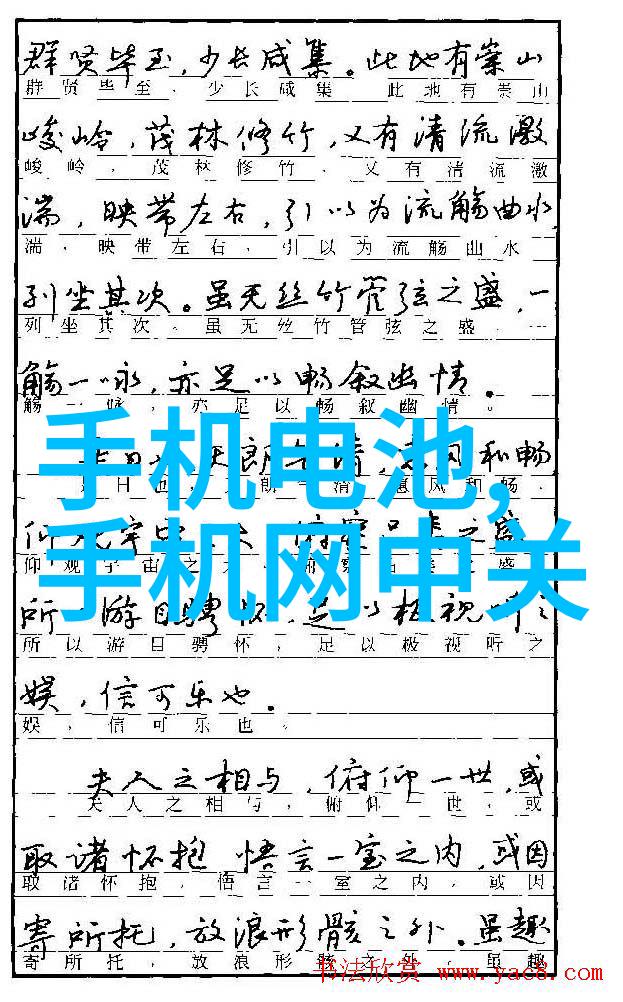 群贤毕至，少长咸集。此地有崇山
群贤毕至，少长咸集。此地有崇山
峻岭，茂林修竹，又有清流激
峻岭，茂林修竹，又有清流激
湍，映带左右，引以为流觞曲水
湍，映带左右，引以为流觞曲水
列坐其次。虽无丝竹管弦之盛，一
列坐其次。虽无丝竹管弦之盛，一
觞一咏，亦足以畅叙幽情。
觞一咏，亦足以畅叙幽情。
手机电池，
手机网中关
和畅
日也，惠风和畅，
仰观宇宙之大
所 游目骋怀，足以极视听之
所以游目骋怀，足以极视听之
娱，信可乐也。
娱，信可乐也。
夫人之相与，俯仰一世，或
夫人之相与，俯仰一世，或
取诸怀抱 悟言一室之内，或因
取诸怀抱，悟言一室之内，或因
寄所托，放浪形骸之外。虽趣
寄所托，放浪形骸之外。虽趣
书法欣赏 www.yac8.com